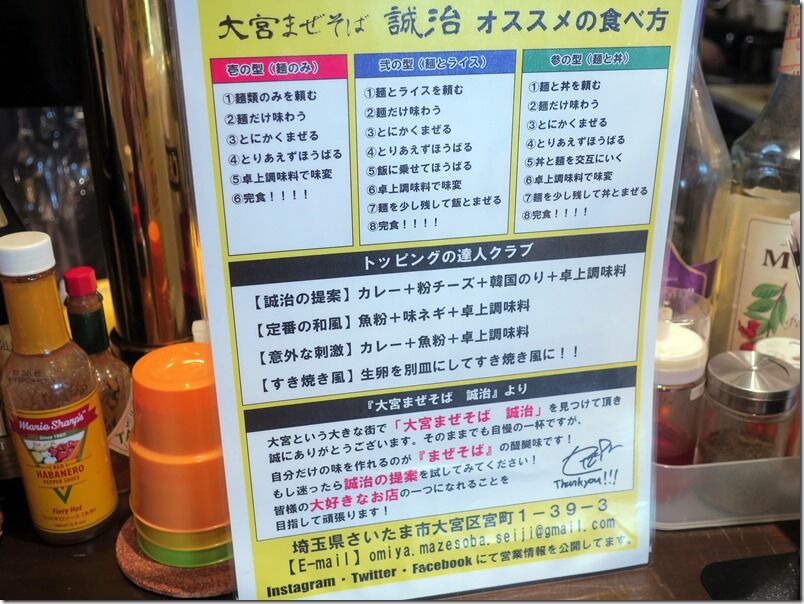 大宮まぜそば 誠治 オススメの食べ方
壱の型（麺のみ）
①麺類のみを頼む
②麺だけ味わう
③とにかくまぜる
④とりあえずほうばる
⑤卓上調味料で味変
⑥完食！！！！
弐の型（麺とライス）
①麺とライスを頼む
②麺だけ味わう
③とにかくまぜる
④とりあえずほうばる
⑤飯に乗せてほうばる
⑥卓上調味料で味変
⑦麺を少し残して飯とまぜる
⑧完食！！！！
参の型（麺と丼）
①麺と丼を頼む
②麺だけ味わう
③とにかくまぜる
④とりあえずほうばる
⑤丼と麺を交互にいく
⑥卓上調味料で味変
⑦麺を少し残して丼とまぜる
⑧完食！！！！
トッピングの達人クラブ
【誠治の提案】カレー＋粉チーズ＋韓国のり＋卓上調味料
【定番の和風】魚粉＋味ネギ＋卓上調味料
【意外な刺激】カレー＋魚粉＋卓上調味料
【すき焼き風】生卵を別皿にしてすき焼き風に！！
『大宮まぜそば 誠治』より
大宮という大きな街で「大宮まぜそば 誠治」を見つけて頂き
誠にありがとうございます。そのままでも自慢の一杯ですが、
自分だけの味を作れるのが『まぜそば』の醍醐味です！
もし迷ったら誠治の提案を試してみてください！
皆様の大好きなお店の一つになれることを
目指して頑張ります！
Thank you!!!
埼玉県さいたま市大宮区宮町1－39－3
【E-mail】omiya.mazesoba.seiji@gmail.com
Instagram・Twitter・Facebookにて営業情報を公開してます。
Marie Sharp's
RED
HABANERO
PEPPER SAUCE
Fiery Hot